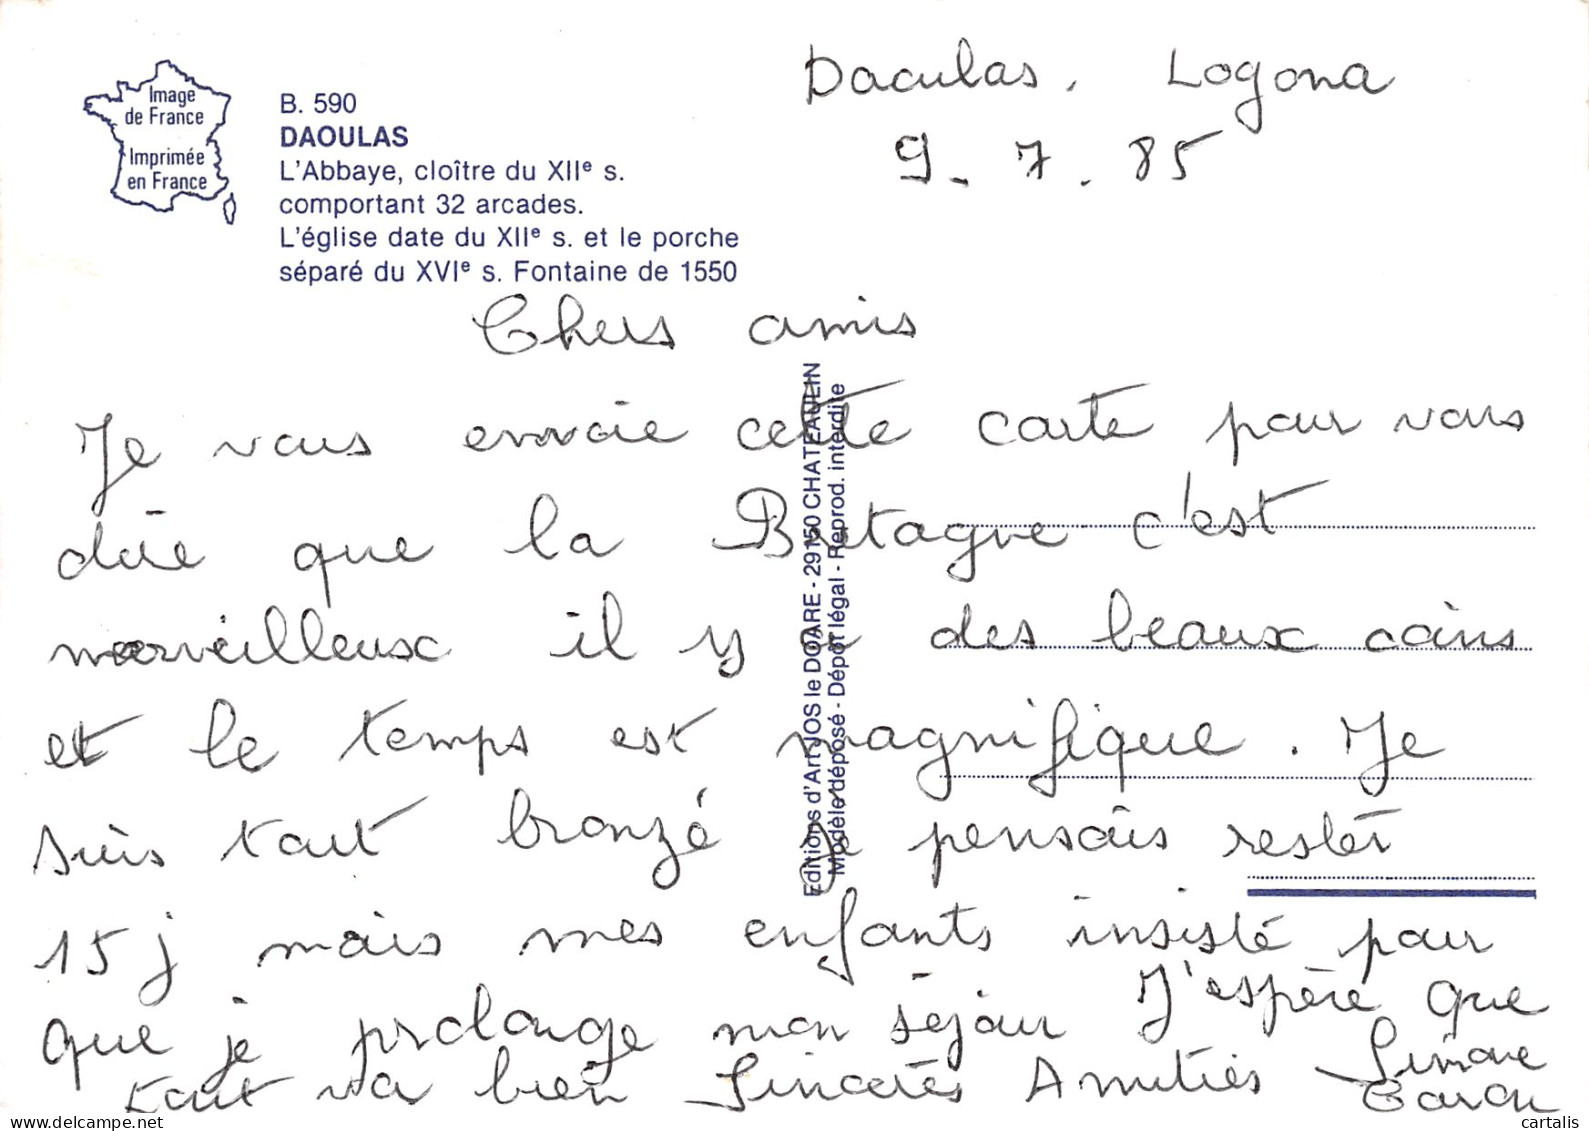 Image
de France
Imprimée
en France
B. 590
DAOULAS
L'Abbaye, cloître du XIIe s.
comportant 32 arcades.
L'église date du XIIe s. et le porche
séparé du XVIe s. Fontaine de 1550
Daoulas, Logona
9. 7. 85
Chers amis
Je vous envoie cette carte pour vous
dire que la Bretagne c'est
merveilleux il y a des beaux coins
et le temps est magnifique. Je
suis tout bronzé je pensais rester
15 j mais mes enfants insisté pour
que je prolonge mon séjour J'espère que
tout va bien Sincerès Amitiés Simone
Editions d'Art JOS le DOARE - 29150 CHATEAULIN
Modèle déposé - Dépôt légal - Reprod. interdite
cartalis